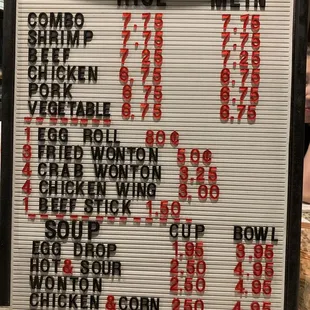 RICE MEIN
COMBO 7.75 7.75
SHRIMP 7.75 7.75
BEEF 7.25 7.25
CHICKEN 6.75 6.75
PORK 6.75 6.75
VEGETABLE 6.75 6.75
1 EGG ROLL 80¢
3 FRIED WONTON 50¢
4 CRAB WONTON 3.25
4 CHICKEN WING 3.00
1 BEEF STICK 1.50
SOUP CUP BOWL
EGG DROP 1.95 3.95
HOT & SOUR 2.50 4.95
WONTON 2.50 4.95
CHICKEN & CORN 2.50 4.95